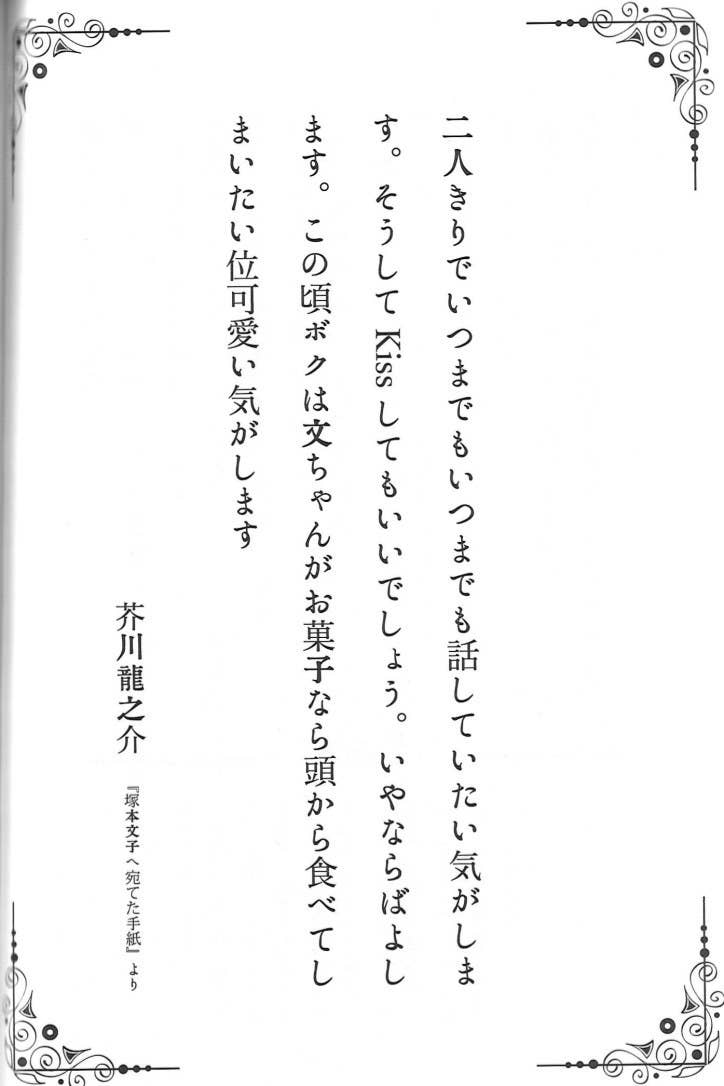 二人きりでいつまでもいつまでも話していたい気がしま
す。そうして Kiss してもいいでしょう。いやならばよし
ます。この頃ボクは文ちゃんがお菓子なら頭から食べてし
まいたい位可愛い気がします
芥川龍之介
『塚本文子へ宛てた手紙』より